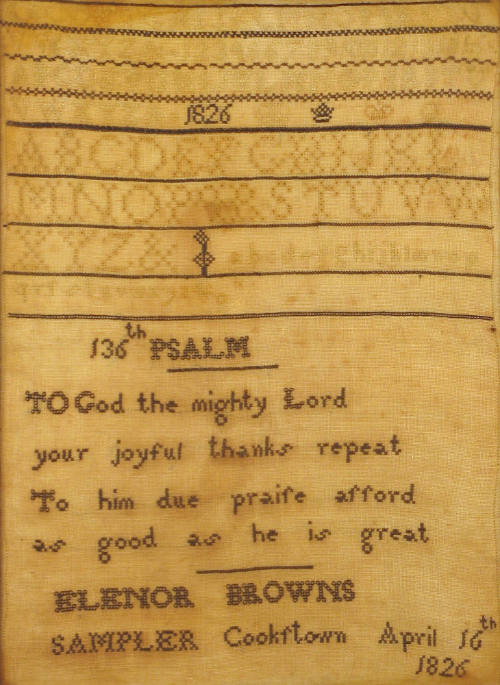 1826
ABCDEFGHIJKL
MNOPQRSTUVW
XYZ&
136th PSALM
TO God the mighty Lord
your joyful thanks repeat
To him due praiſe afford
as good as he is great
ELENOR BROWNS
SAMPLER Cookſtown April 16th
1826